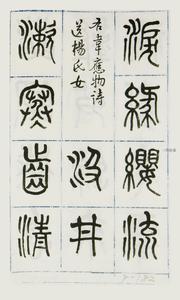 淚緣纓流
右韋應物詩
送楊氏女
汲井
漱寒齒清